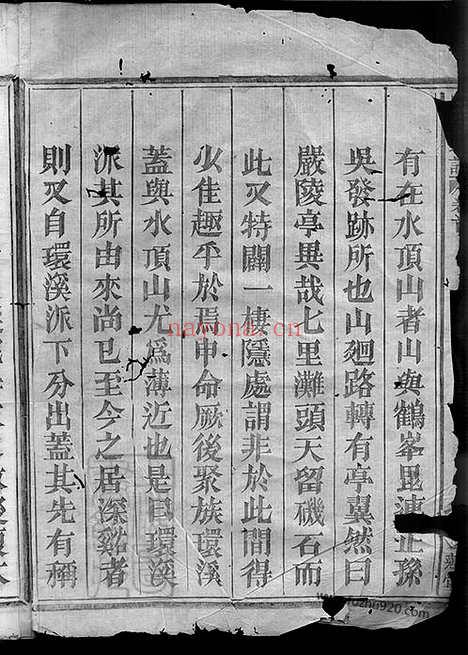 有在水頂山者山與鶴峯毘連正孫
吳發跡所也山廻路轉有亭翼然曰
嚴陵亭異哉七里灘頭天留磯石而
此又特闢一棲隱處謂非於此間得
少佳趣乎於焉申命厥後聚族環溪
蓋與水頂山尤爲薄近也是曰環溪
派其所由來尚已至今之居深谿者
則又自環溪派下分出蓋其先有稱
nayona.cn